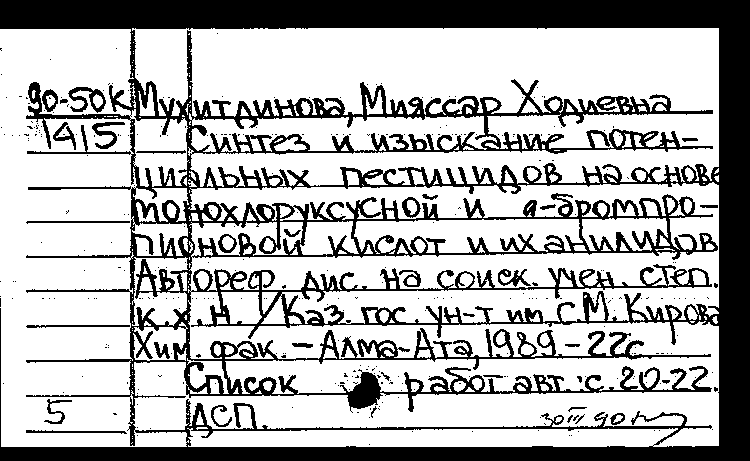 90-50К Мухитдинова, Мияссар Ходиевна
1415 Синтез и изыскание потен-
циальных пестицидов на основе
монохлоруксусной и α-бромпро-
пионовой кислот и их анилидов
Автореф. дис. на соиск. учен. степ.
к.х.н. /Каз. гос. ун-т им. С.М. Кирова
Хим. фак. - Алма-Ата, 1989. - 22с
Список работ авт.: с. 20-22.
5 ДСП. 30 III 90